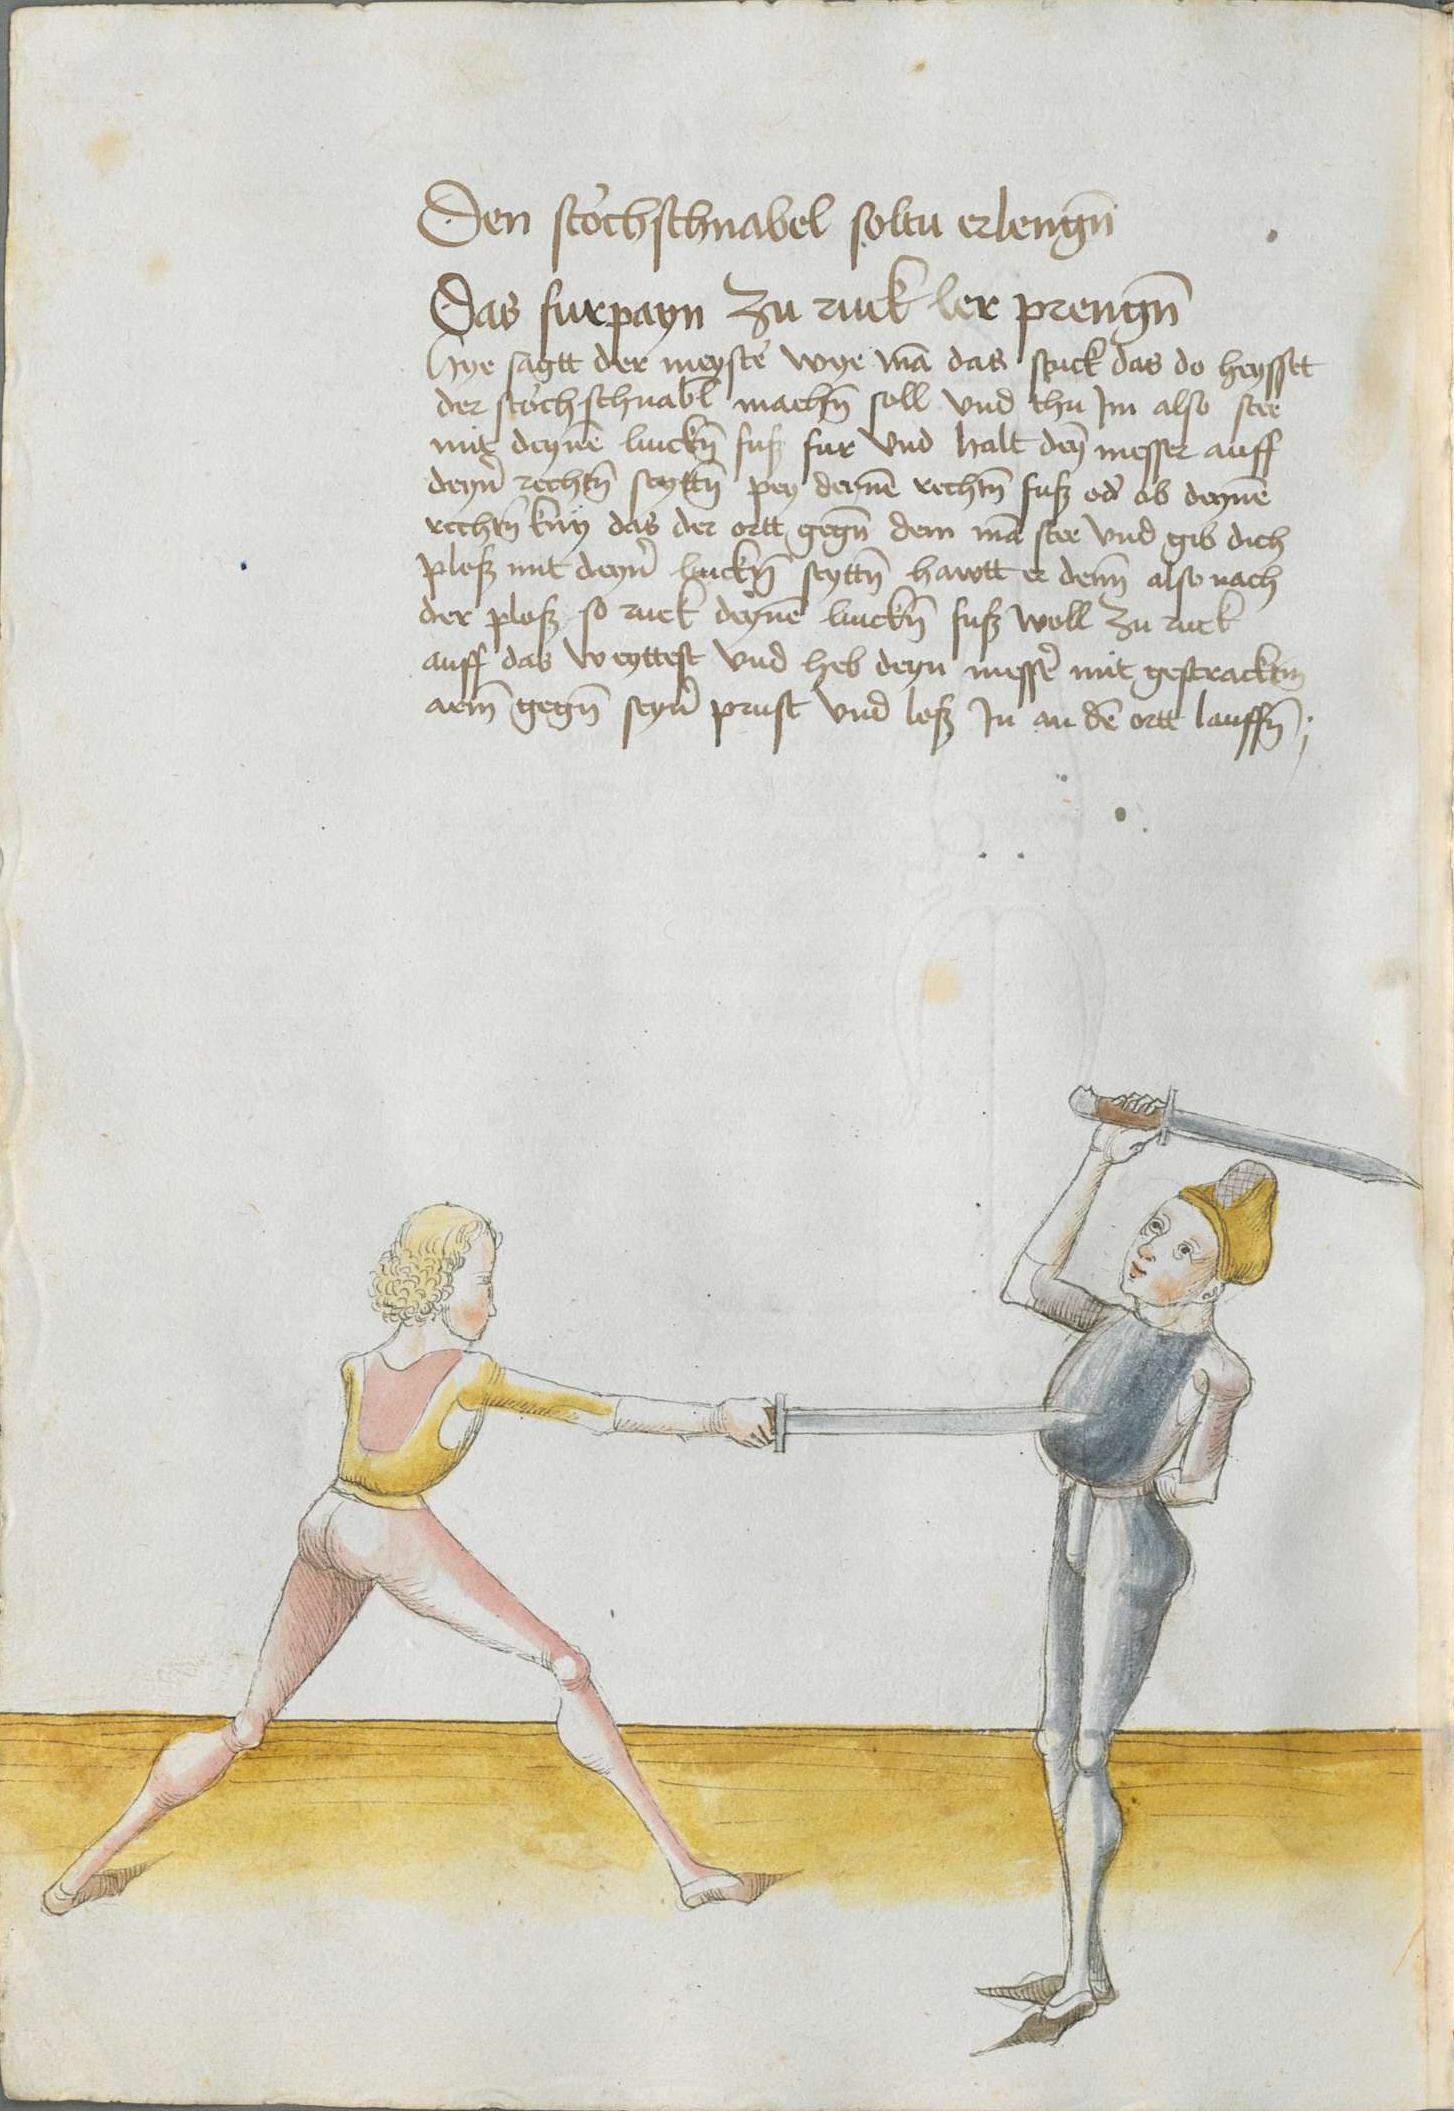 Den storchschnabel soltu erlengn̄
Das furpayn zu ruck ler prengn̄
Hye sagtt der meyster wye mā das stuck das do heysset
der storchschnabl machn̄ soll vnd thu Im also stee
mit deynē linckn̄ fuß fur vnd halt deȳ messer auff
deyner rechtn̄ seyttn̄ pey deynē rechtn̄ fuß oder ob deynē
rechtn̄ kny das der ortt gegn̄ dem mā stee vnd gib dich
ploß mit deyner linckn̄ seyttn̄ hawtt er denn̄ also nach
der ploß so ruck deynē linckn̄ fuß woll zu ruck
auff das weyttest vnd heb deyn messer mit gestracktm
arm̄ gegn̄ seyner prust vnd loß In an dē ortt lauffn̄